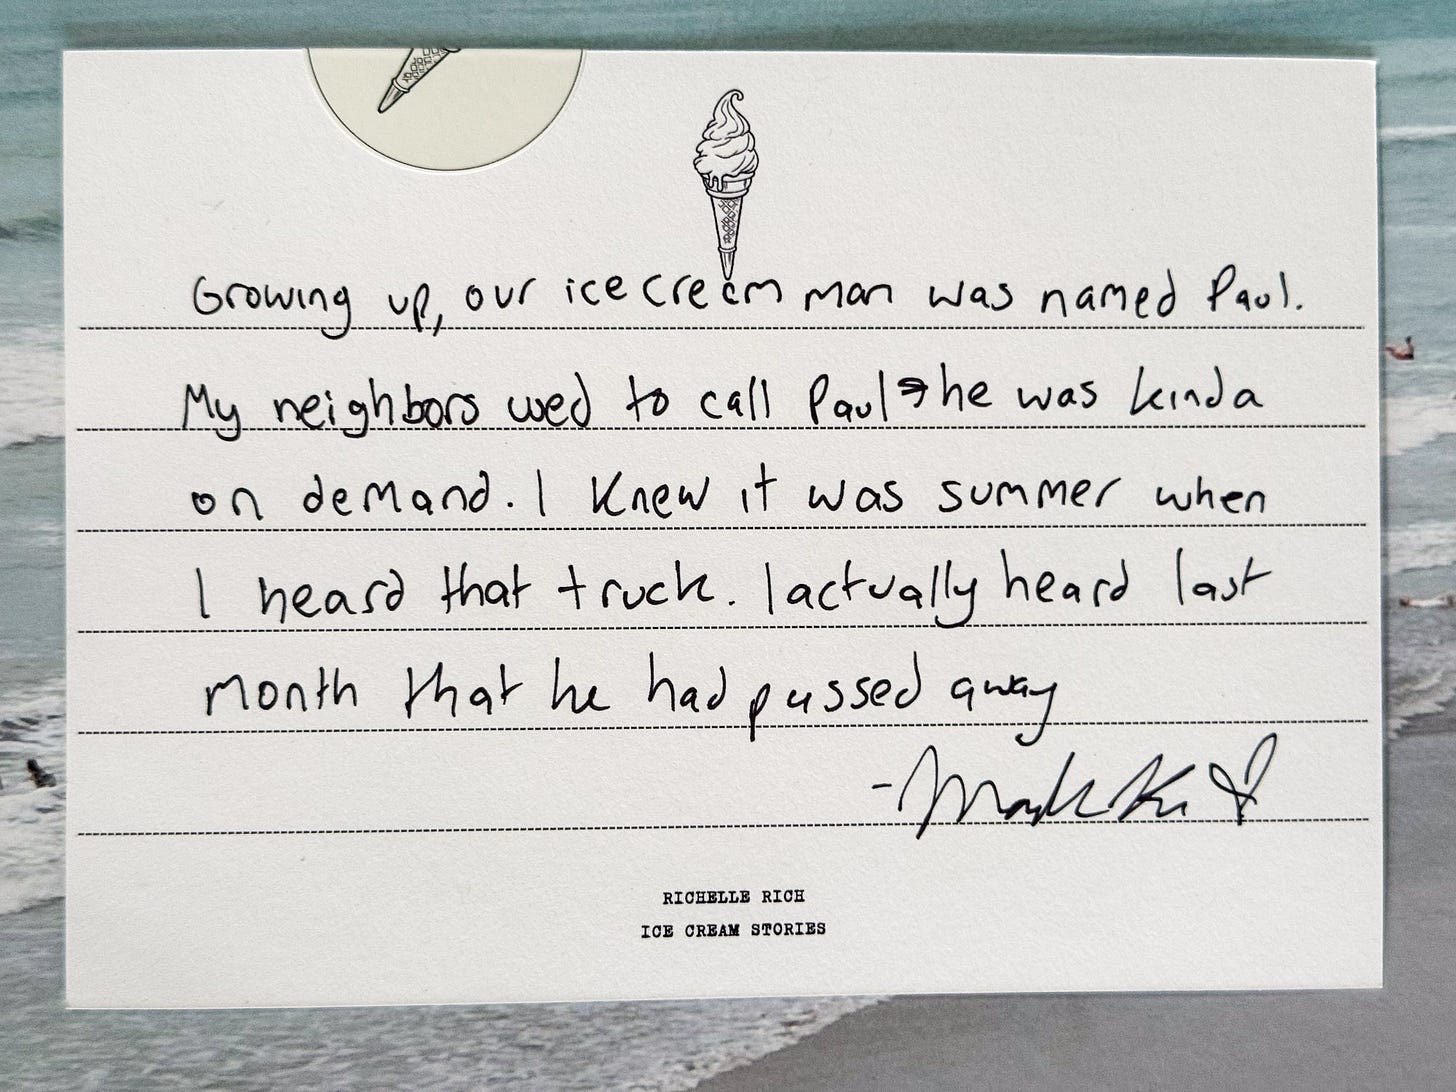 Growing up, our ice cream man was named Paul.
My neighbors used to call Paul → he was kinda
on demand. I knew it was summer when
I heard that truck. I actually heard last
month that he had passed away
RICHELLE RICH
ICE CREAM STORIES